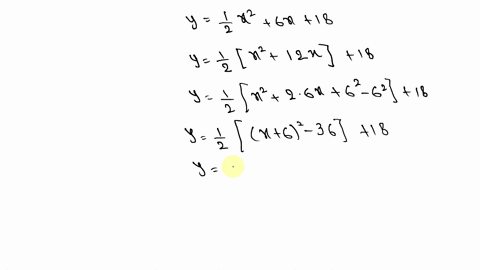 y = 1/2 x² + 6x + 18
y = 1/2 [x² + 12x] + 18
y = 1/2 [x² + 2·6x + 6² - 6²] + 18
y = 1/2 [(x+6)² - 36] + 18
y =